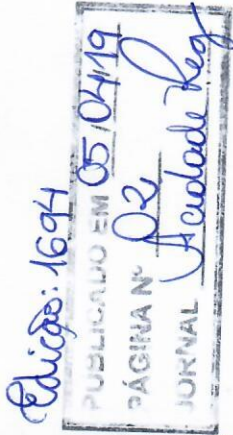 Edição: 1694
PUBLICADO EM 05/04/19
PÁGINA Nº 02
JORNAL Acidade Reg